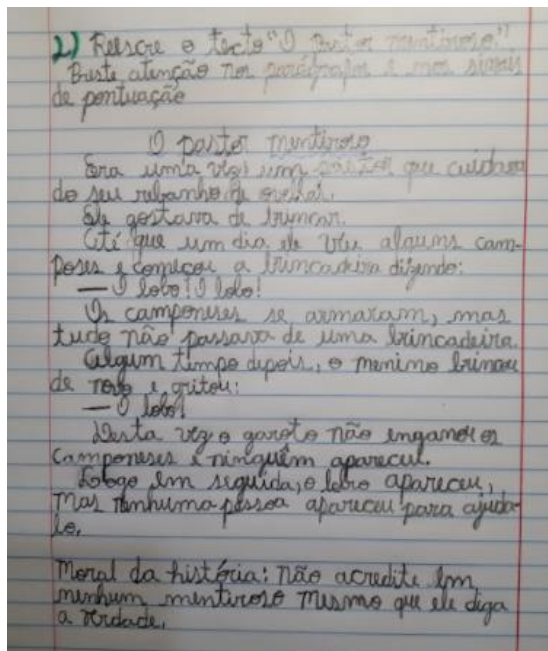 2) Reescre o texto "O Pastor mentiroso"
Preste atenção nos parágrafos e nos sinais
de pontuação
O pastor mentiroso
Era uma vez um pastor que cuidava
do seu rebanho de ovelhas.
Ele gostava de brincar.
Até que um dia, ele viu alguns cam-
poses e começou a brincadeira dizendo:
— O lobo! O lobo!
Os camponeses se armaram, mas
tudo não passava de uma brincadeira.
Algum tempo depois, o menino brincou
de novo e gritou:
— O lobo!
Desta vez o garoto não enganou os
camponeses e ninguém apareceu.
Logo em seguida, o lobo apareceu,
mas nenhuma pessoa apareceu para ajuda-
lo.
Moral da história: não acredite em
nenhum mentiroso mesmo que ele diga
a verdade.